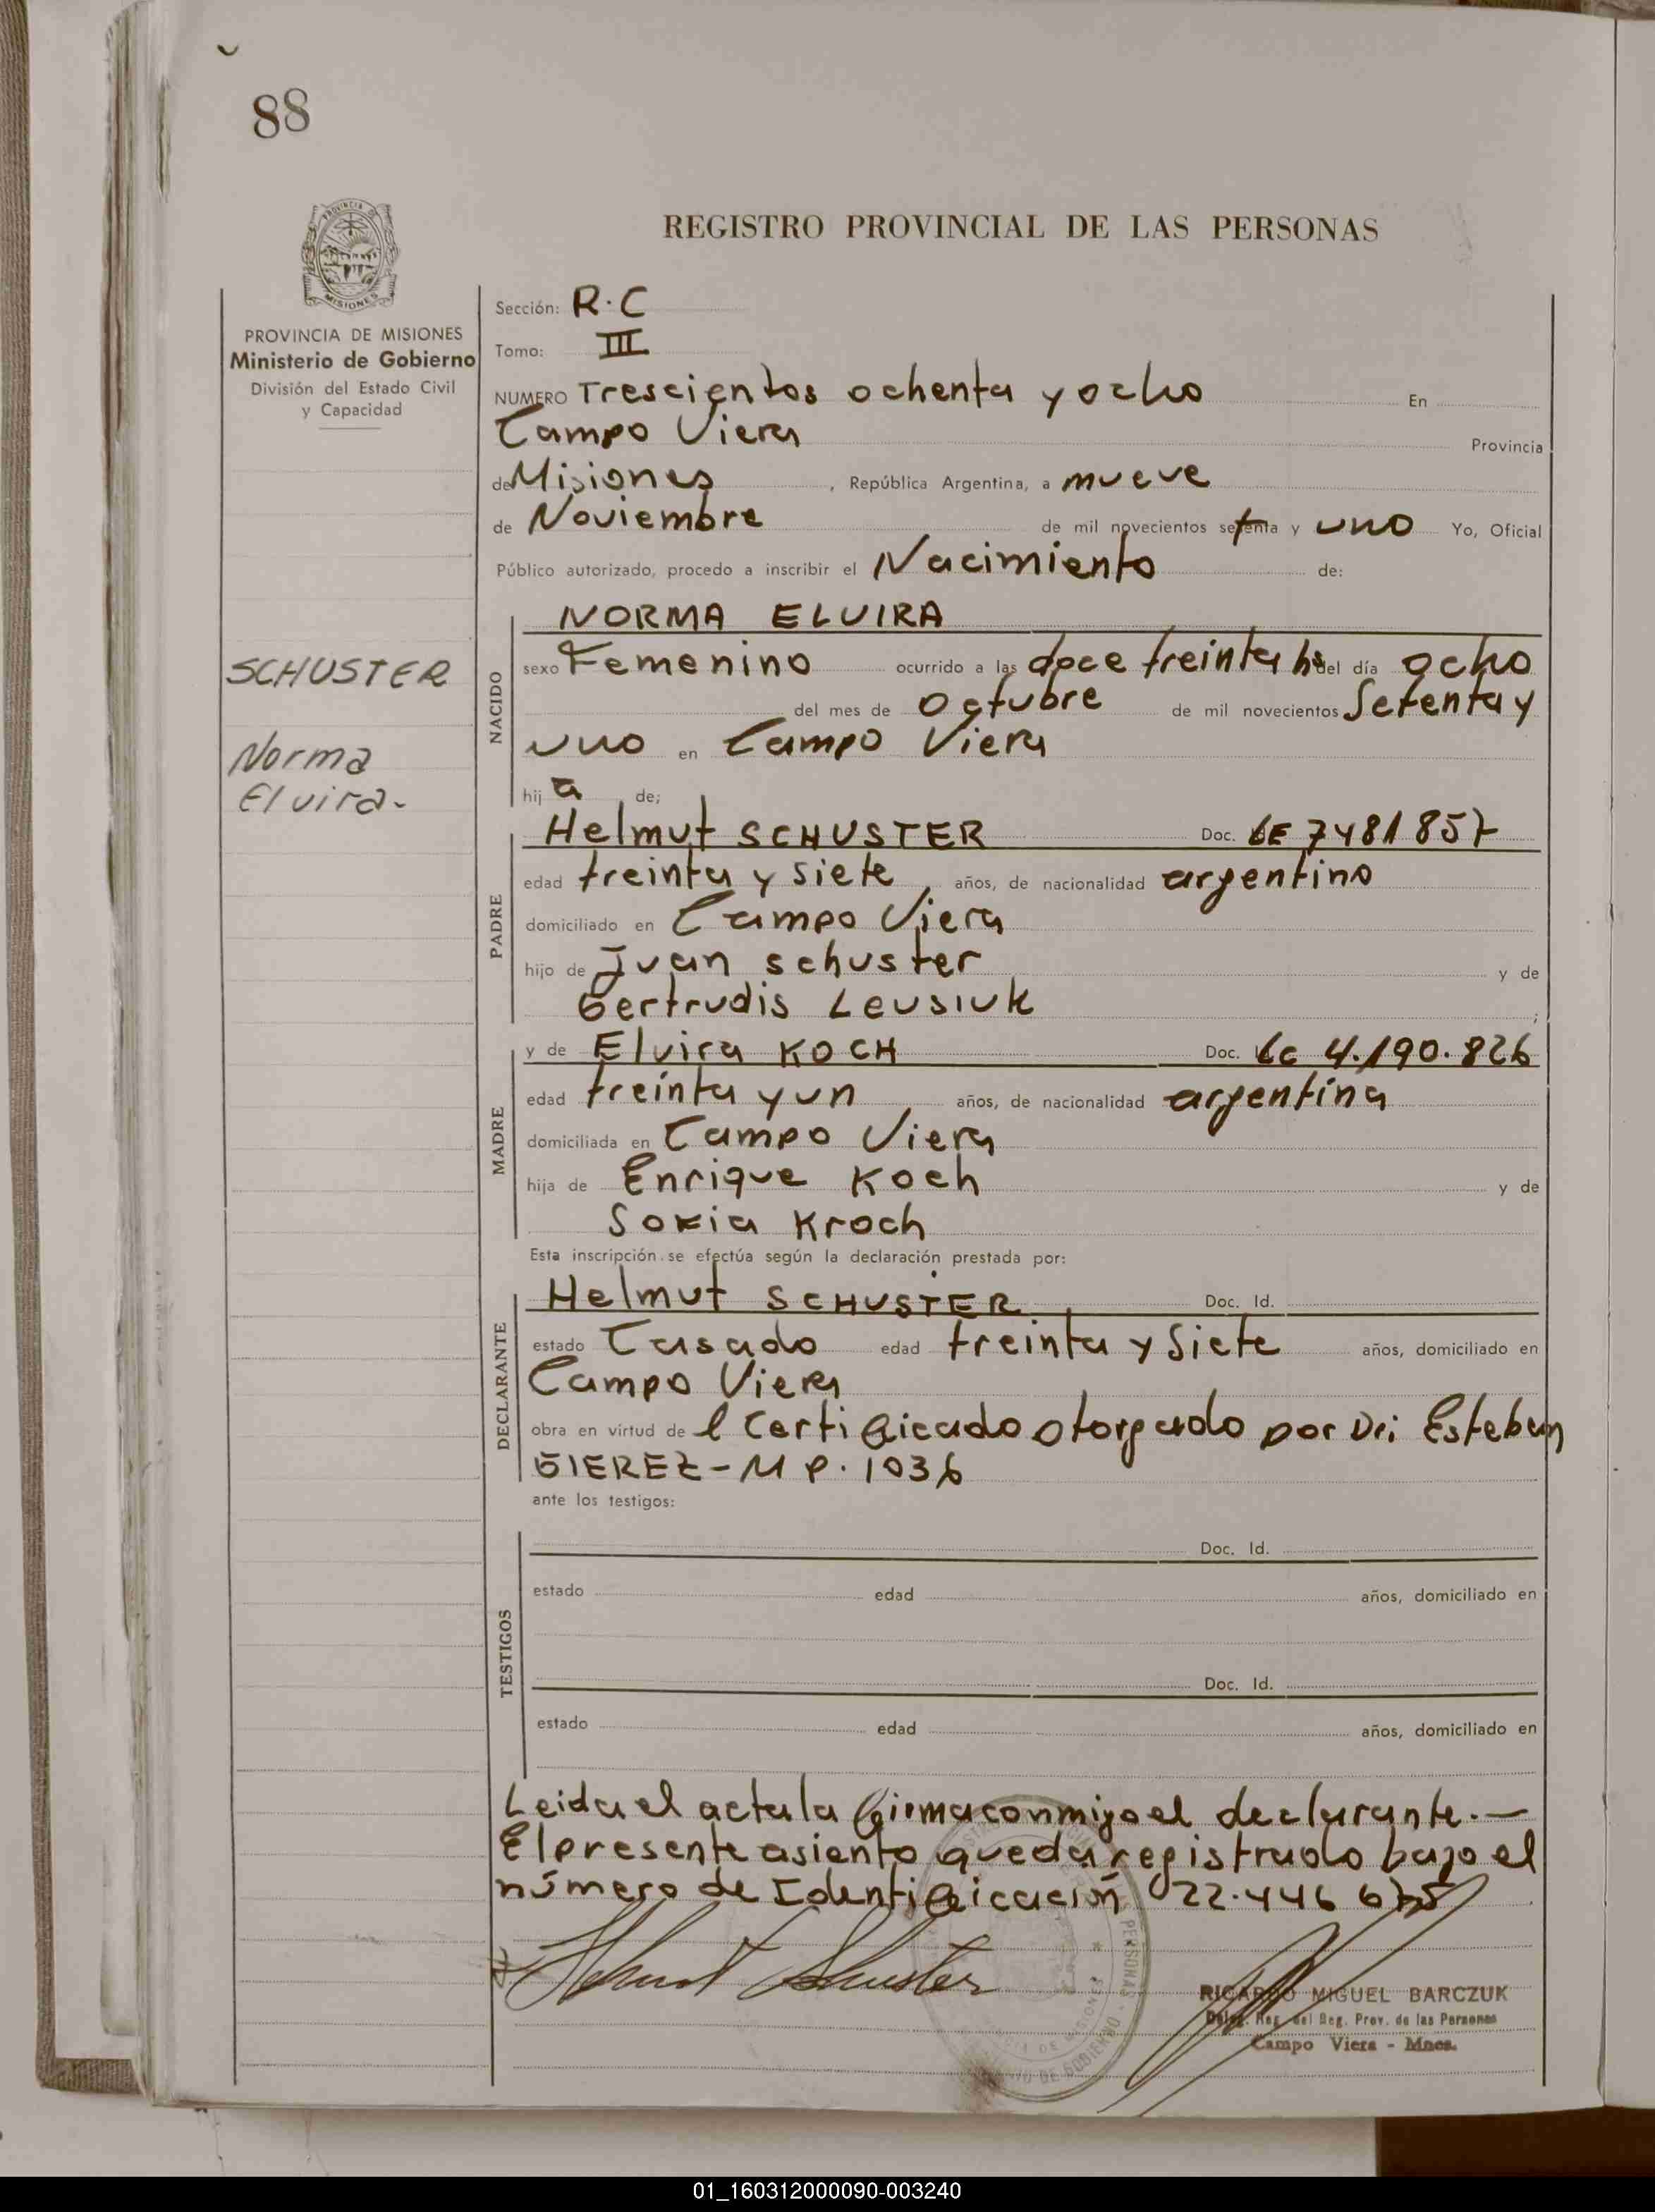 88
REGISTRO PROVINCIAL DE LAS PERSONAS
PROVINCIA DE MISIONES
Ministerio de Gobierno
División del Estado Civil
y Capacidad
SCHUSTER
Norma
Elvira.
Sección: R.C
Tomo: III
NUMERO Trescientos ochenta y ocho En
Campo Viera Provincia
de Misiones, República Argentina, a nueve
de Noviembre de mil novecientos setenta y uno Yo, Oficial
Público autorizado, procedo a inscribir el Nacimiento de:
NACIDO
NORMA ELVIRA
sexo Femenino ocurrido a las doce treinta hs del día ocho
del mes de Octubre de mil novecientos Setenta y
uno en Campo Viera
hija de;
PADRE
Helmut SCHUSTER Doc. LE 7481857
edad treinta y siete, años, de nacionalidad argentino
domiciliado en Campo Viera
hijo de Juan Schuster y de
Gertrudis Leusiuk ;
MADRE
y de Elvira KOCH Doc. LC 4.190.826
edad treinta y un años, de nacionalidad argentina
domiciliada en Campo Viera
hija de Enrique Koch y de
Sofia Kroch
Esta inscripción se efectúa según la declaración prestada por:
DECLARANTE
Helmut SCHUSTER Doc. Id.
estado Casado edad treinta y Siete años, domiciliado en
Campo Viera
obra en virtud de l Certificado otorgado por Dr: Esteban
GIEREZ - M P. 1036
ante los testigos:
TESTIGOS
Doc. Id.
estado edad años, domiciliado en
Doc. Id.
estado edad años, domiciliado en
Leida el acta la firma conmigo el declarante.—
El presente asiento queda registrado bajo el
número de Identificación 22.446 675
Helmut Schuster
RICARDO MIGUEL BARCZUK
Deleg. Reg. del Reg. Prov. de las Personas
Campo Viera - Mnes.
01_160312000090-003240